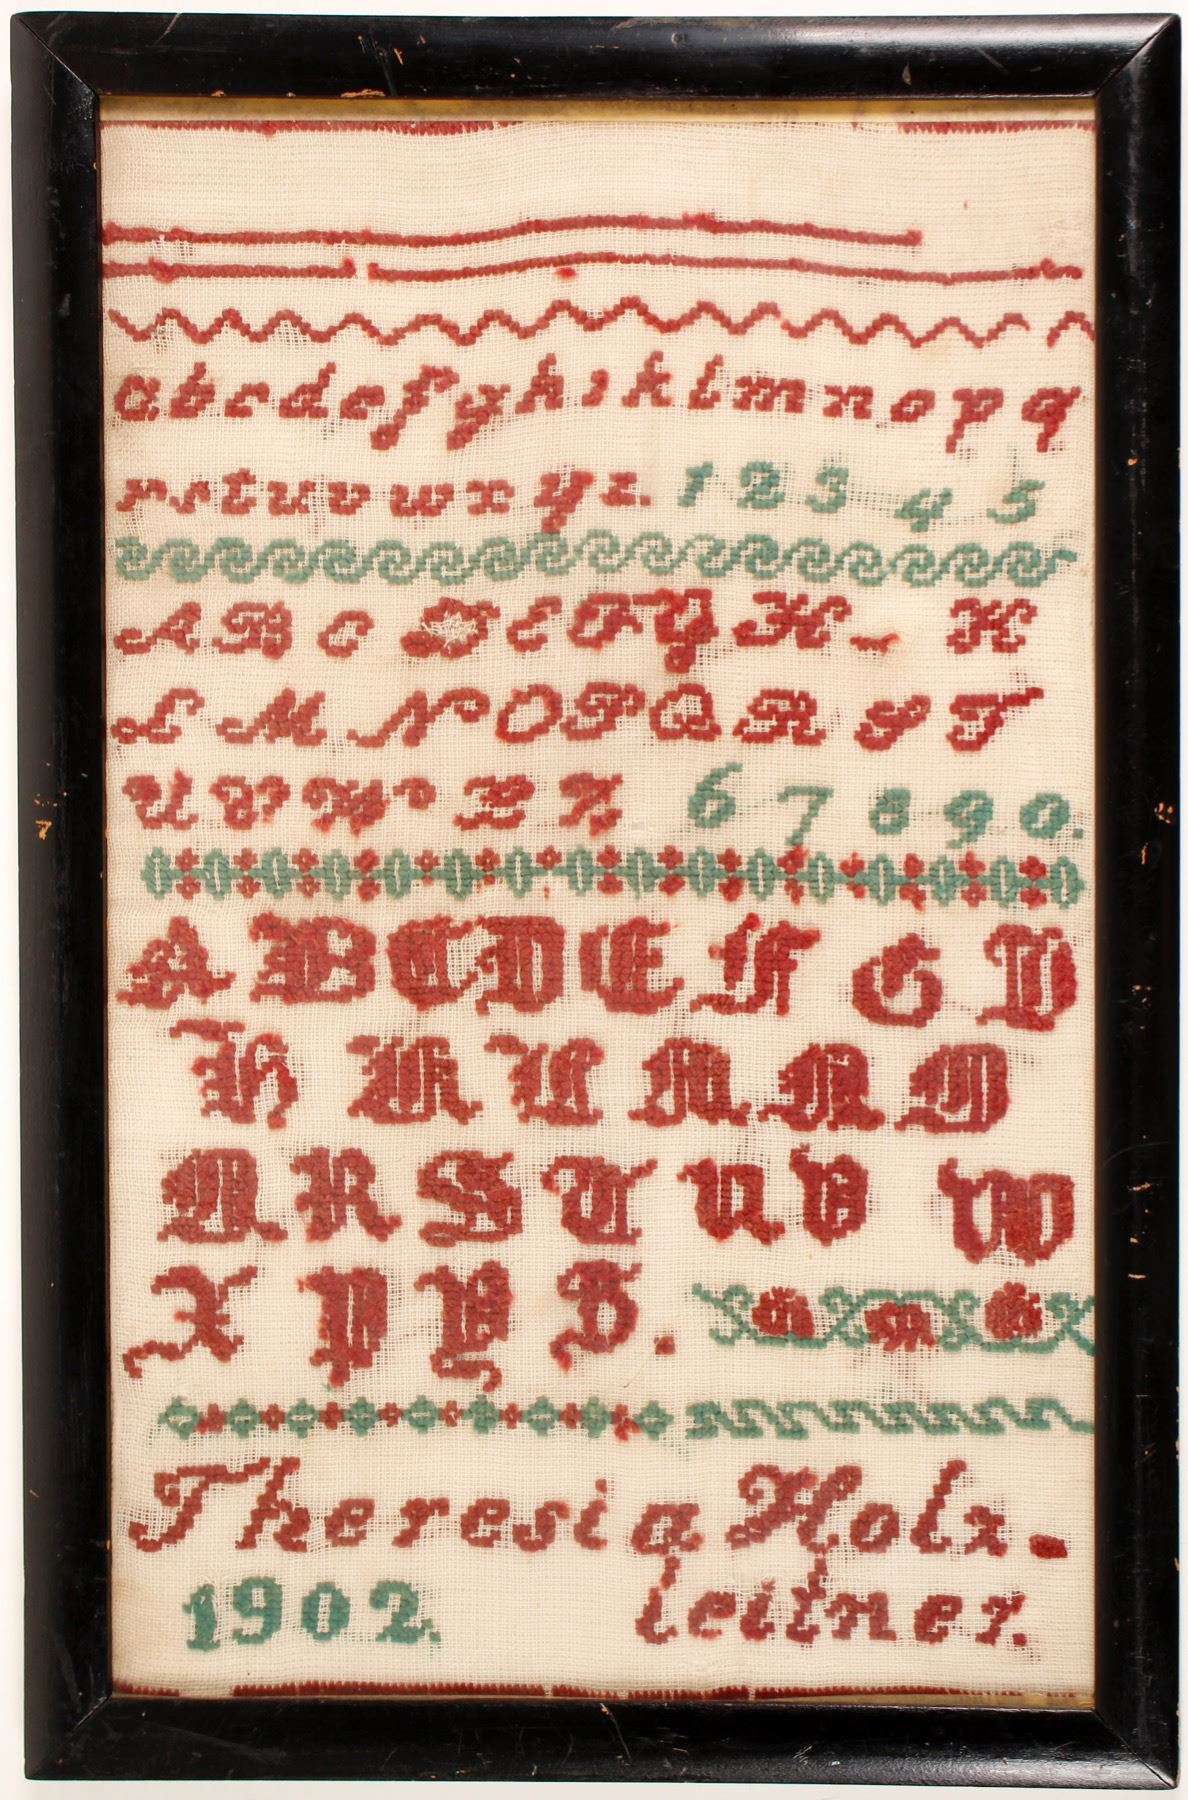 a b c d e f g h i k l m n o p q
r s t u v w x y z. 1 2 3 4 5
A B C D E F G H K
L M N O P Q R S T
U V W X Z 6 7 8 9 0.
A B C D E F G D
H K L M N O
Q R S T U V W
X P Y Z.
Theresia Holz-
1902. leitner.